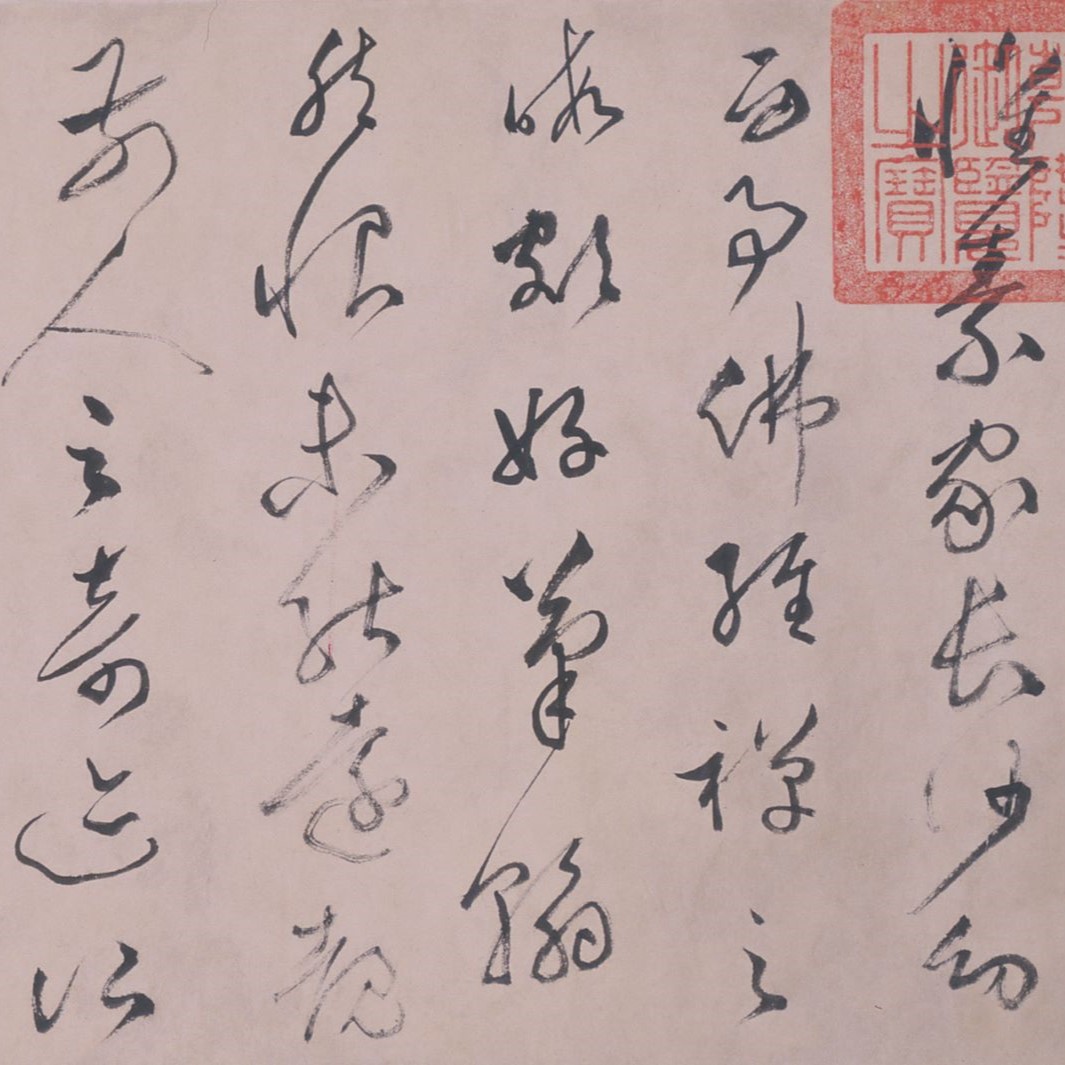 懷素家長沙幼
而事佛經禪之
暇頗好筆翰
然恨未能遠覩
前人之奇迹所
御覽
之寶